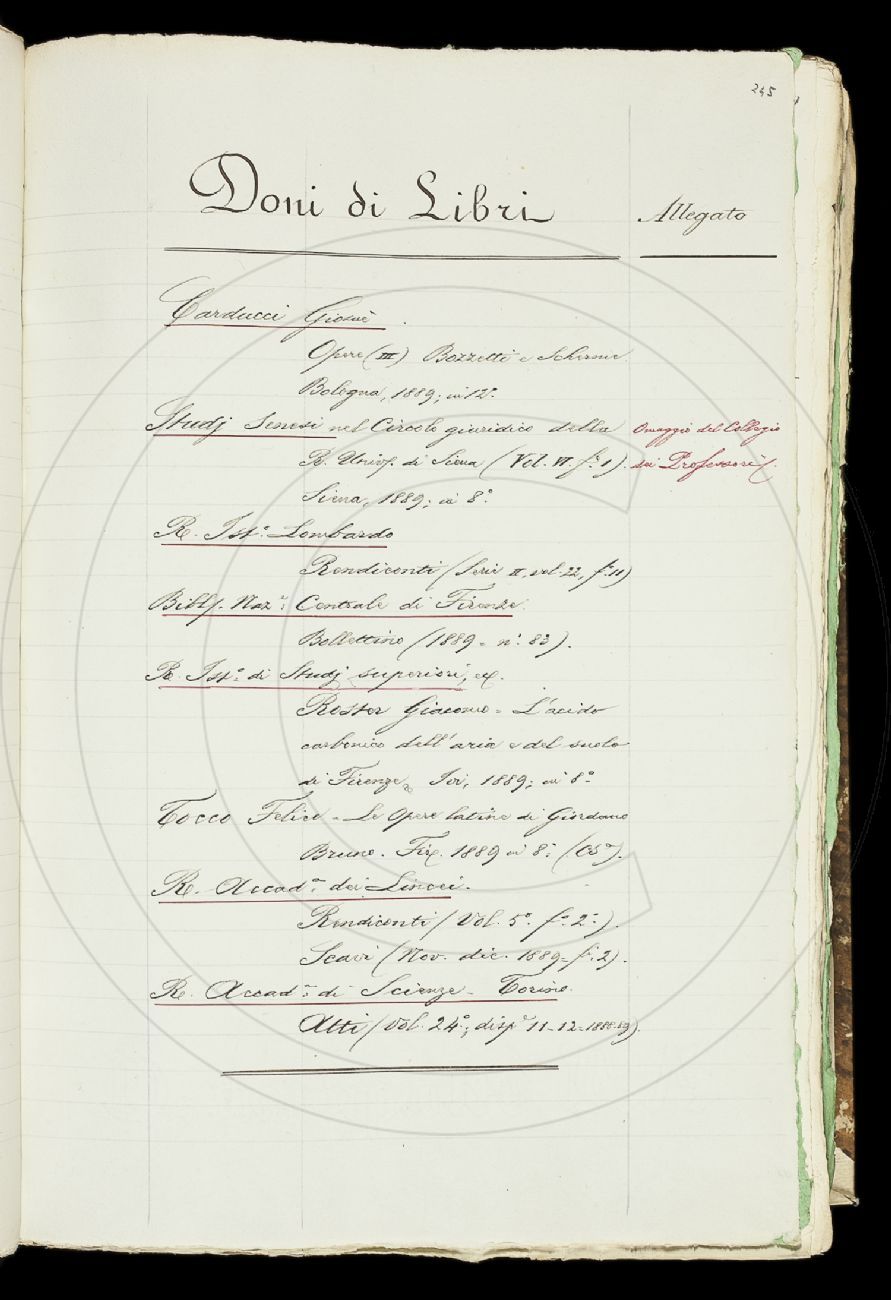 245
Doni di Libri
Allegato
Carducci Giosuè.
Opere (III) Bozzetti e Scherme
Bologna, 1889; in 12°.
Studj Senesi nel Circolo giuridico della
Omaggio del Collegio
R. Univ. di Siena (Vol. VI. f.° 1).
dei Professori.
Siena, 1889; in 8°.
R. Ist.° Lombardo
Rendiconti (Serie II, vol. 22, f.° 11)
Bibl. Naz.e Centrale di Firenze.
Bollettino (1889 = n.° 83).
R. Ist.° di Studj superiori, ec.
Roster Giacomo = L'acido
carbonico dell'aria e del suolo
di Firenze. Ivi, 1889; in 8°
Tocco Felice = Le Opere latine di Giordano
Bruno. Fir. 1889 in 8°.
R. Accad.a dei Lincei.
Rendiconti (Vol. 5° f.° 2°).
Scavi (Nov. dic. 1889 = f.° 2).
R. Accad.a di Scienze = Torino.
Atti (Vol. 24°; disp.e 11-12=1888-89).